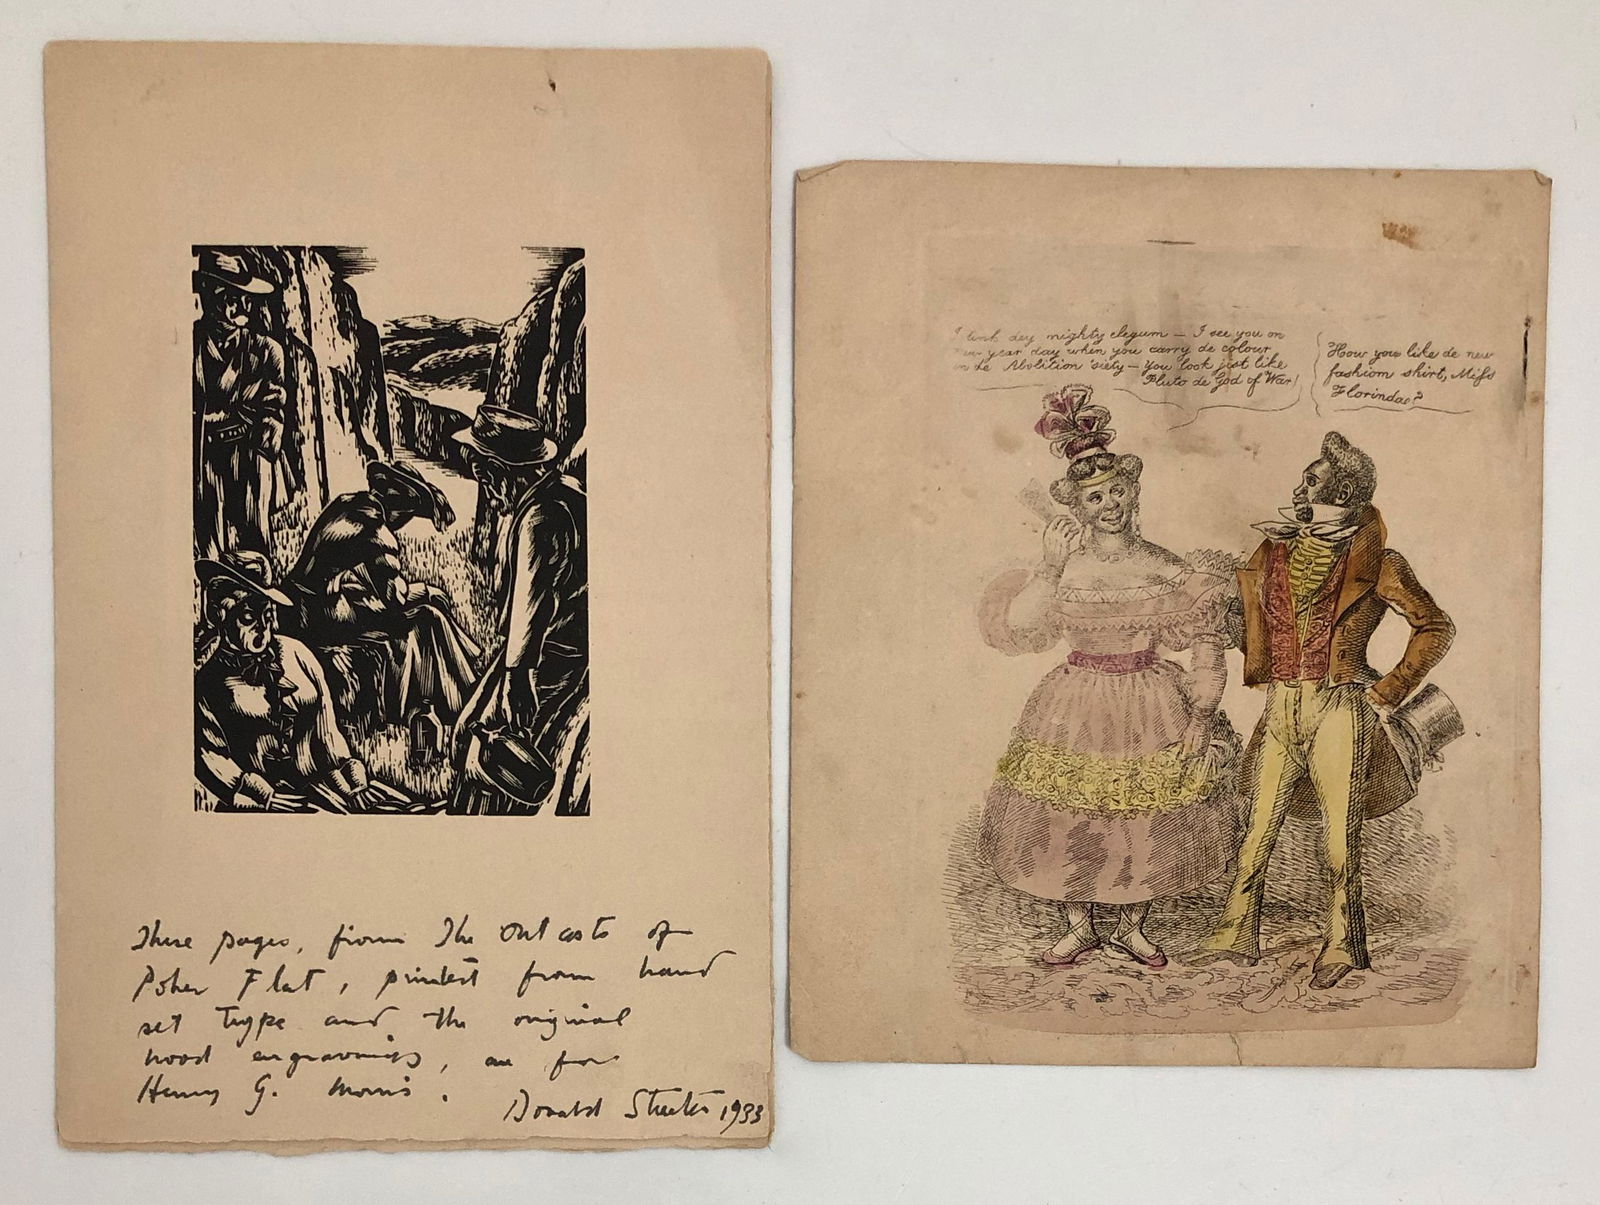 These pages, from The Outcasts of
Poker Flat, printed from hand
set Type and the original
wood engravings, are for
Henry G. Morris.
Donald Streeter 1933
I tink dey mighty elegum — I see you on
new year day when you carry de colour
in de Abolition 'siety — You look jist like
Pluto de God of War!
How you like de new
fashion shirt, Miss
Florinda?